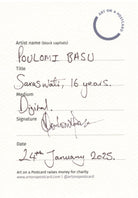 ART ON A POSTCARD
Artist name (block capitals)
POULOMI BASU
Title
Saraswati, 16 years.
Medium
Digital
Signature
Date
24th January 2025.
Art on a Postcard raises money for charity
www.artonapostcard.com | @artonapostcard